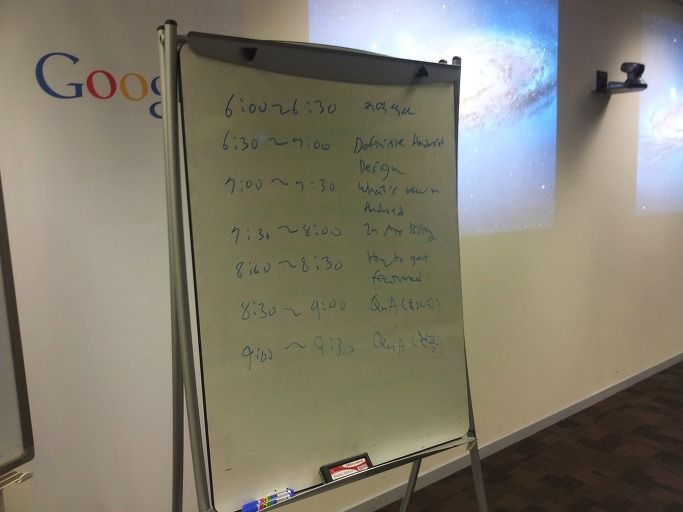 Goog
6:00~6:30
6:30 ~ 7:00 Definitive Android
Design
7:00 ~ 7:30 What's new in
Android
7:30 ~ 8:00 In App Billing
8:00 ~ 8:30 How to get
featured
8:30 ~ 9:00 QnA
9:00 ~ 9:30 QnA